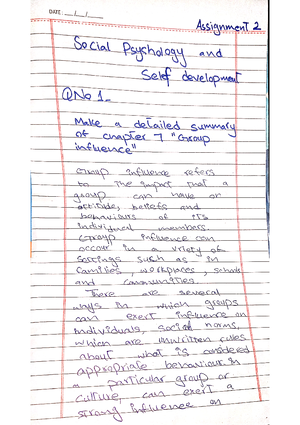 DATE: __/__/__
Assignment 2
Social Psychology and
Self development
Q No 1_
Make a detailed summary
of chapter 7 "Group
influence"
Group influence refers
to the impact that a
group can have on
attitude, beliefs and
behaviours of its
individual members.
Group influence can
occur in a vriety of
settings such as in
families, workplaces, schools
and communities.
There are several
ways in which groups
can exert influence on
individuals, social norms,
which are unwritten rules
about what is considered
appropriate behaviour in
a particular group or
culture, can exert a
strong influence on